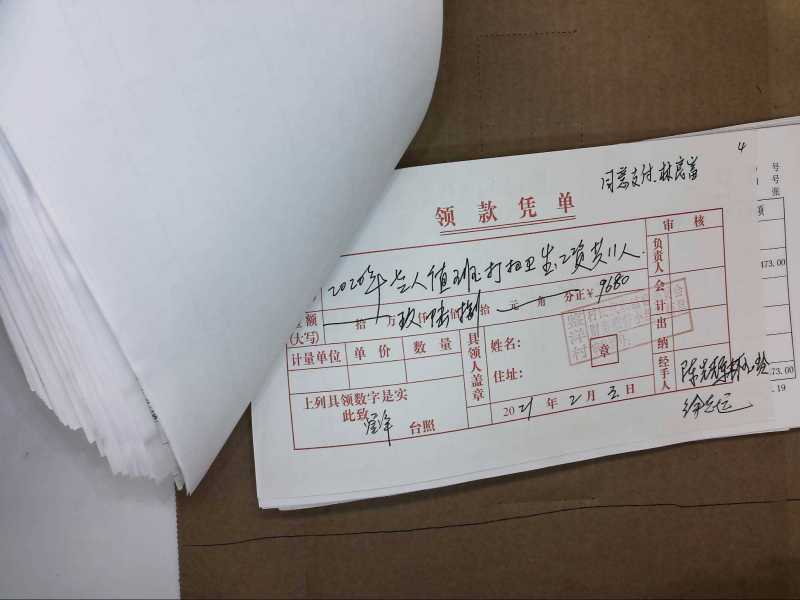 4
同意支付.林房富
领款凭单
2020年老人值班打扫卫生工资共11人.
金额
(大写)
拾万玖仟陆佰捌拾元角分正¥9680
审核
负责人
会计
出纳
经手人
计量单位 单价 数量
具领人盖章
姓名:
住址:
章
上列具领数字是实
此致
台照
2021年2月3日
号
号
张
473.00
73.00
.19